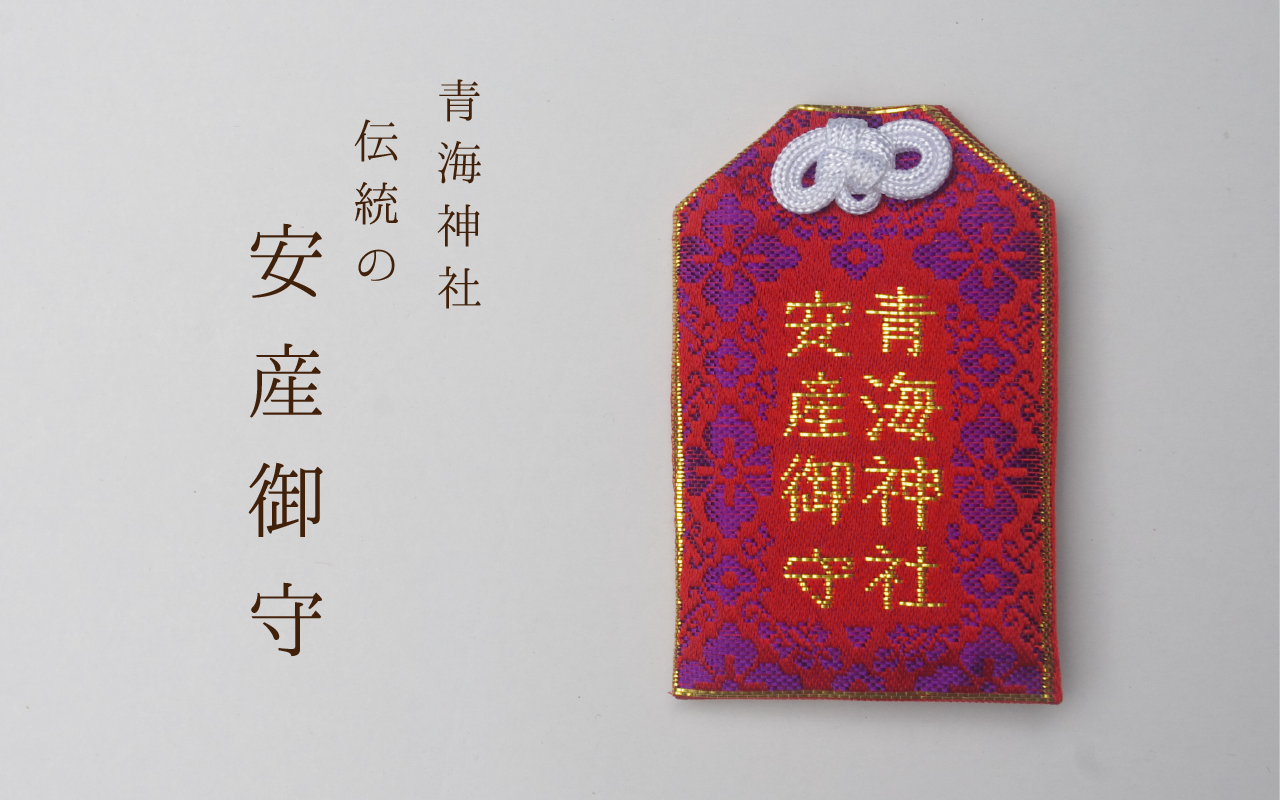 青海神社
伝統の
安産御守
青海神社
安産御守